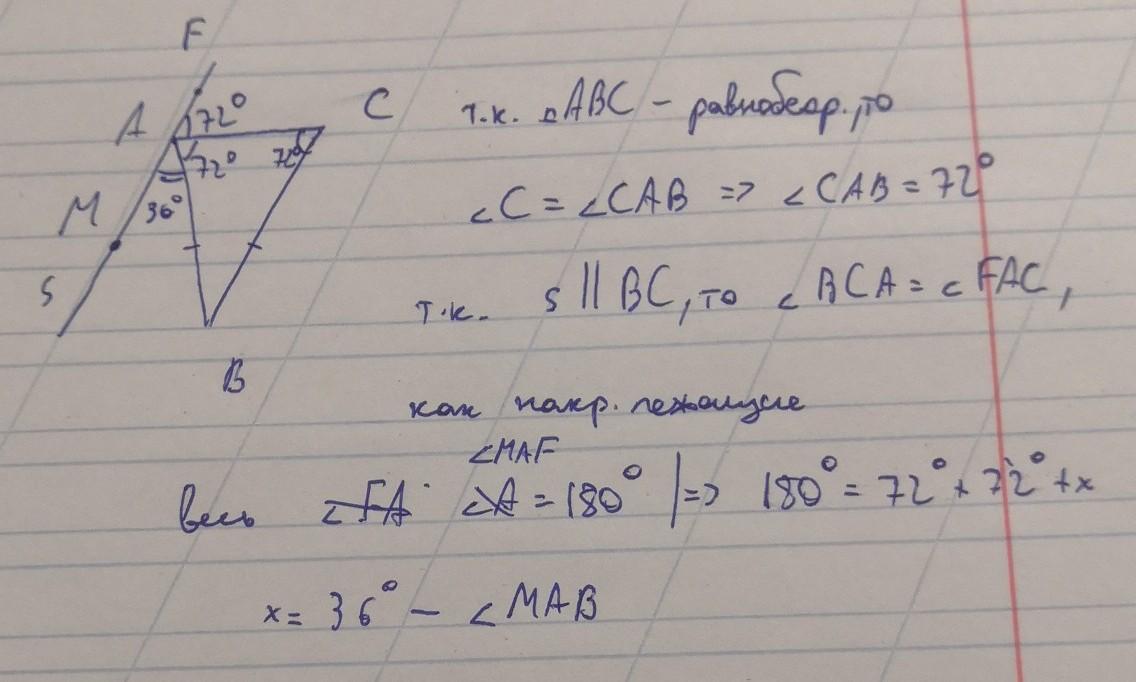 F
A 72° C
72° 72°
M 36°
S
B
т.к. △ABC – равнобедр., то
∠C = ∠CAB => ∠CAB = 72°
т.к. s || BC, то ∠BCA = ∠FAC,
как накр. лежащие
∠MAF
весь ∠FA ∠A = 180° | => 180° = 72° + 72° + x
x = 36° – ∠MAB